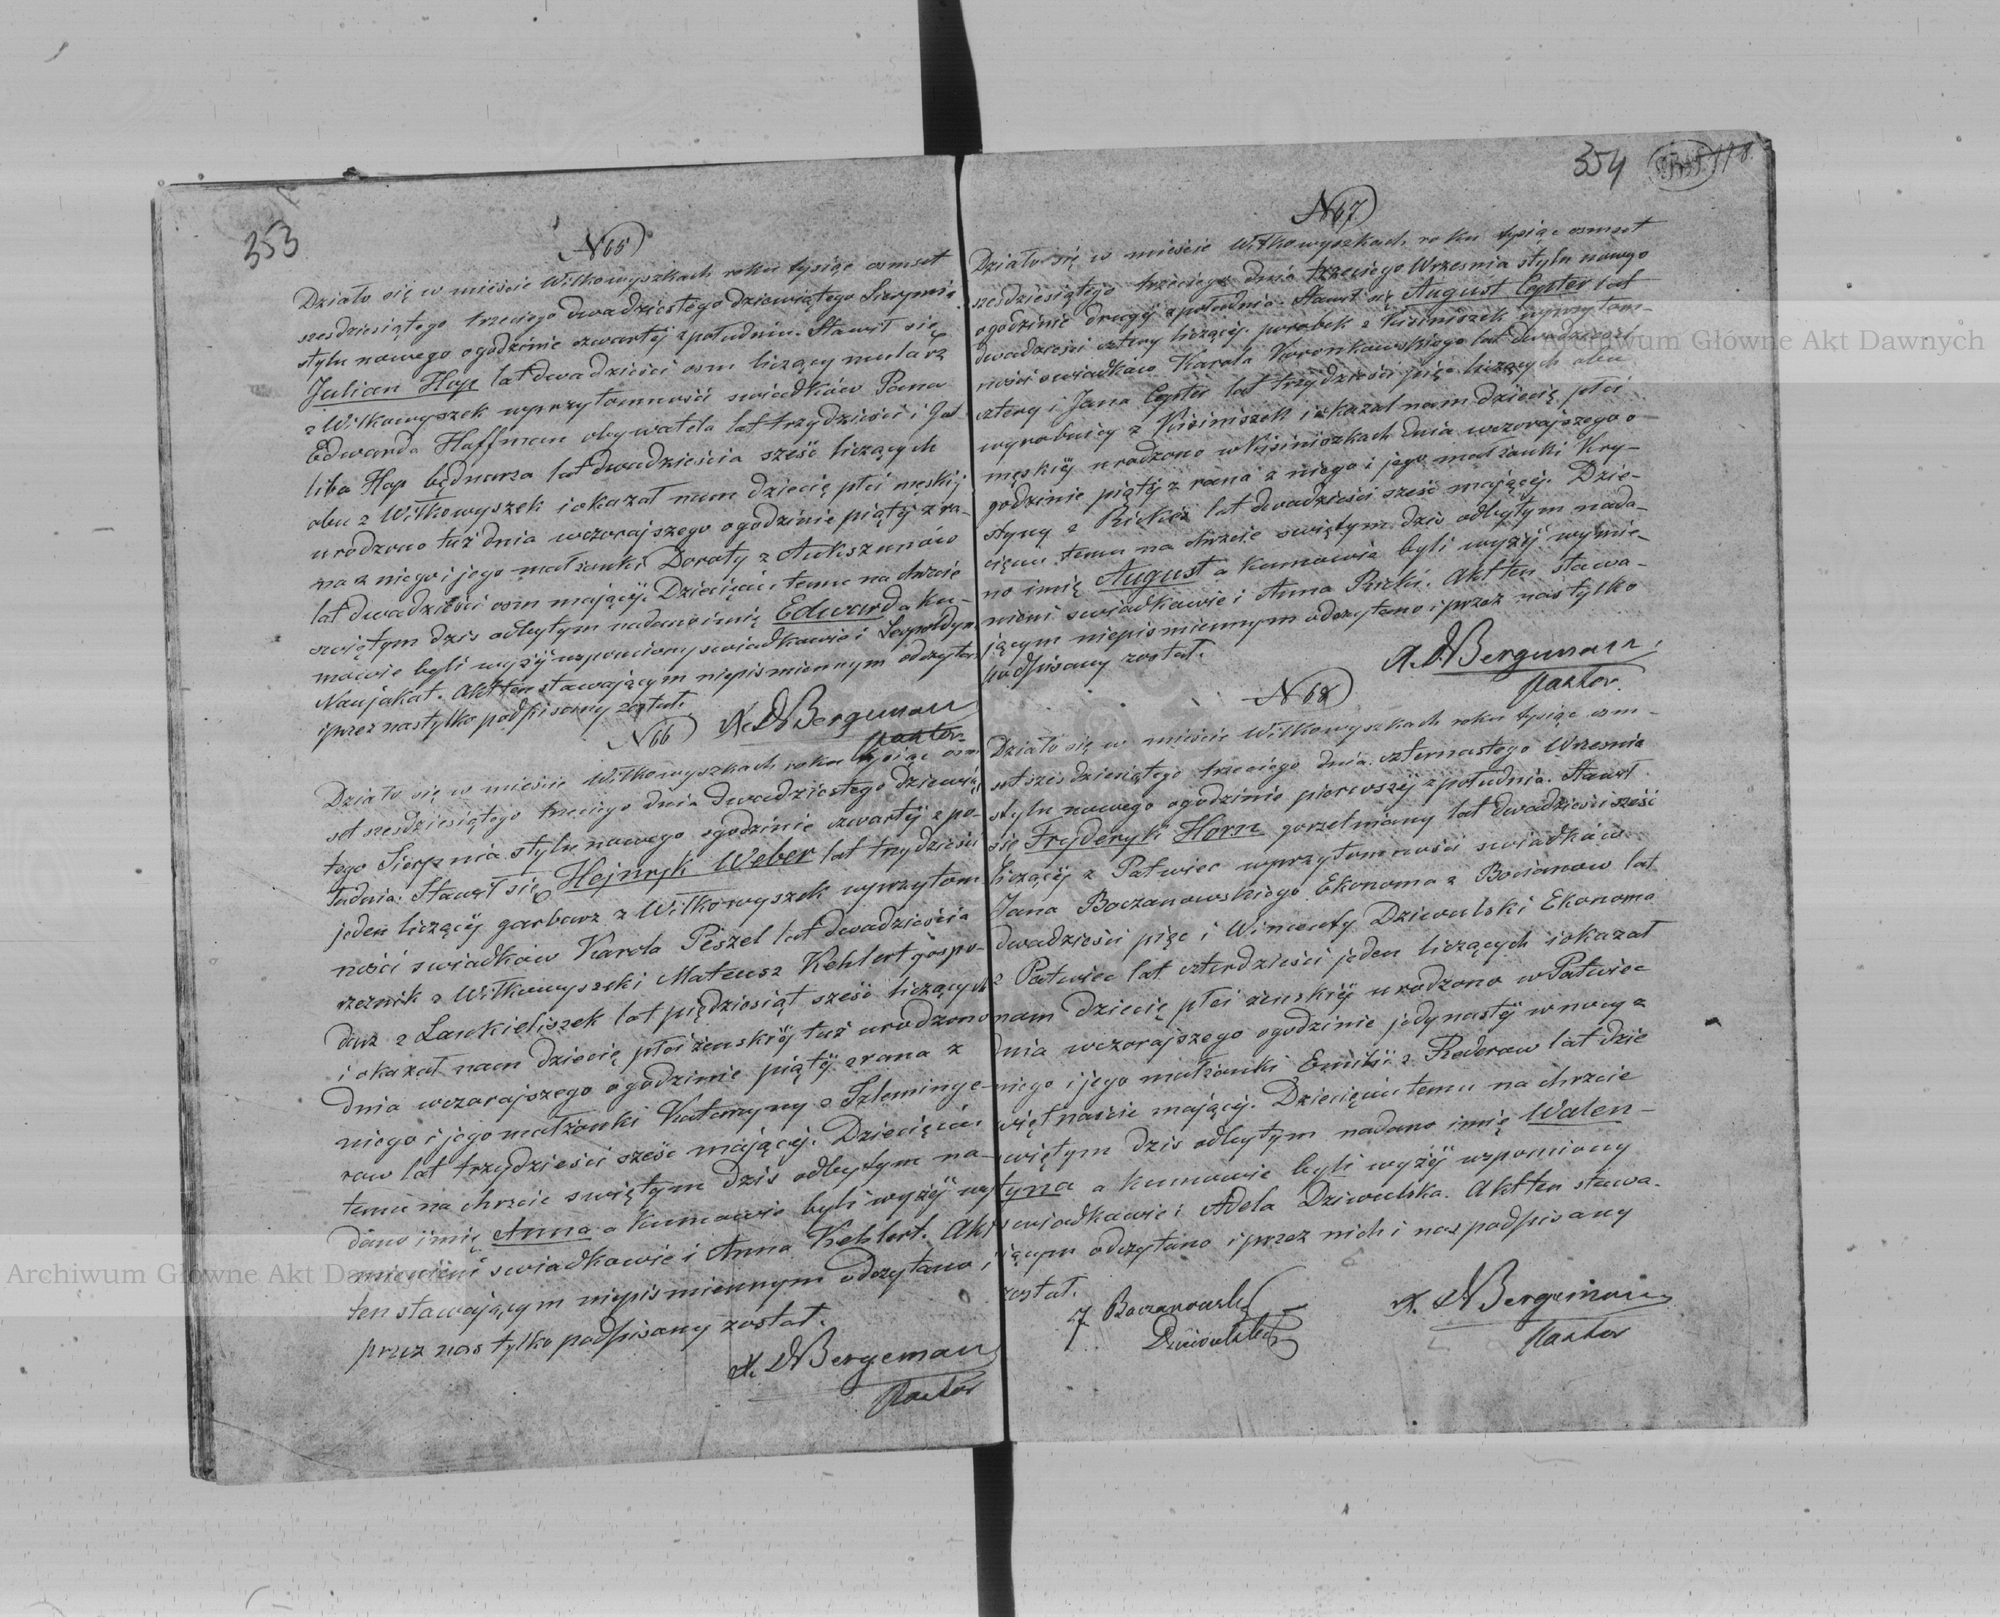 353
N 65
Działo się w mieście Wiłkowyszkach roku tysiąc osmset
szesdziesiątego trzeciego dwadziestego dziewiątego Sierpnia
stylu nowego ogodzinie czwartÿ zpołudnia. Stawił się
Julian Hop lat dwadzieści osm liczący mularz
z Wiłkowyszek wprzytomności swiadków Pana
Edwarda Hoffman obywatela lat trzydzieści i Got
liba Hop bednarza lat dwadzieścia sześć liczących
obu z Wiłkowyszek i okazał nam dziecię płci męskij
urodzono tuż dnia wczorajszego ogodzinie piątÿ zra-
na z niego i jego małżonki Doroty z Aukszunów
lat dwadzieści osm mającÿ. Dziecięciu temu na chrzcie
swiętym dzis odbytym nadano imię Edward a ku-
mowie byli wyżÿ wspomiony swiadkowie i Leopoldyn
Naujokat. Akt ten stawającym niepismiennym odczytano
i przez nas tylko podpisany został.
A. D Bergeman
pastor
N 66
Działo się w mieście Wiłkowyszkach roku tysiąc osm
set szesdziesiątego trzeciego dnia dwadziestego dziewią
tego Sierpnia stylu nowego ogodzinie czwartÿ z po-
łudnia. Stawił się Hejnryk Weber lat trzydzieści
jeden liczącÿ garbarz z Wiłkowyszek wprzytom
ności swiadków Karola Peszel lat dwadzieścia
rzeznik z Wiłkowyszki Mateusz Kehlert gospo-
darz z Laukieliszek lat pięćdziesiąt sześć liczących
i okazał nam dziecię płci żenskiÿ tuż urodzono
dnia wczorajszego ogodzinie piątÿ zrana z
niego i jego małżonki Katarzyny z Szleminge-
row lat trzydzieści sześć mającÿ. Dziecięciu
temu na chrzcie swiętym dzis odbytym na-
dano imię Anna a kumowie byli wyżÿ wy
mienieni swiadkowie i Anna Kehlert. Akt
ten stawającym niepismiennym odczytano i
przez nas tylko podpisany został.
A. D Bergeman
Pastor
354
118.
N 67
Działo się w mieście Wiłkowyszkach roku tysiąc osmset
szesdziesiątego trzeciego dnia trzeciego Wrzesnia stylu nowego
ogodzinie drugiÿ zpołudnia. Stawił się August Cepter lat
dwadzieści cztery liczącÿ. parobek z Kisiniszek wprzytom-
ności swiadków Karola Woronkowskiego lat dwadzieści
cztery i Jana Cepter lat trzydzieści pięc liczących obu
wyrobnicy z Kisiniszek i okazał nam dziecię płci
męskiÿ urodzono w Kisiniszkach dnia wczorajszego o-
godzinie piątÿ z rana z niego i jego małżonki Kry-
styny z Rickież lat dwadzieści sześć mającÿ. Dzie-
cięciu temu na chrzcie swiętym dzis odbytym nada-
no imię August a kumowie byli wyżÿ wymie-
nieni swiadkowie i Anna Rozki. Akt ten stawa-
jącym niepismiennym odczytano i przez nas tylko
podpisany został.
A. D Bergeman
pastor.
N 68
Działo się w mieście Wiłkowyszkach roku tysiąc osm-
set szesdziesiątego trzeciego dnia czternastego Wrzesnia
stylu nowego ogodzinie pierwszÿ zpołudnia. Stawił
się Fryderyk Horn gorzelniany lat dwadzieści sześć
liczącÿ z Patwiec wprzytomności swiadków
Jana Boczanowskiego Ekonoma z Bocianow lat
dwadzieści pięc i Wincenty Dziewulski Ekonoma
z Patwiec lat czterdzieści jeden liczących i okazał
nam dziecię płci żenskiÿ urodzono w Patwiec
dnia wczorajszego ogodzinie jedynastÿ w nocy z
niego i jego małżonki Emilii z Rederow lat dzie
więtnaście mającÿ. Dziecięciu temu na chrzcie
swiętym dzis odbytym nadano imię Walen-
tyna a kumowie byli wyżÿ wspomiony
swiadkowie i Adela Dziewulska. Akt ten stawa-
jącym odczytano i przez nich i nas podpisany
został.
J Boczanowski
Dziewulski
A. D Bergeman
Pastor
Archiwum Główne Akt Dawnych
Archiwum Główne Akt Dawnych